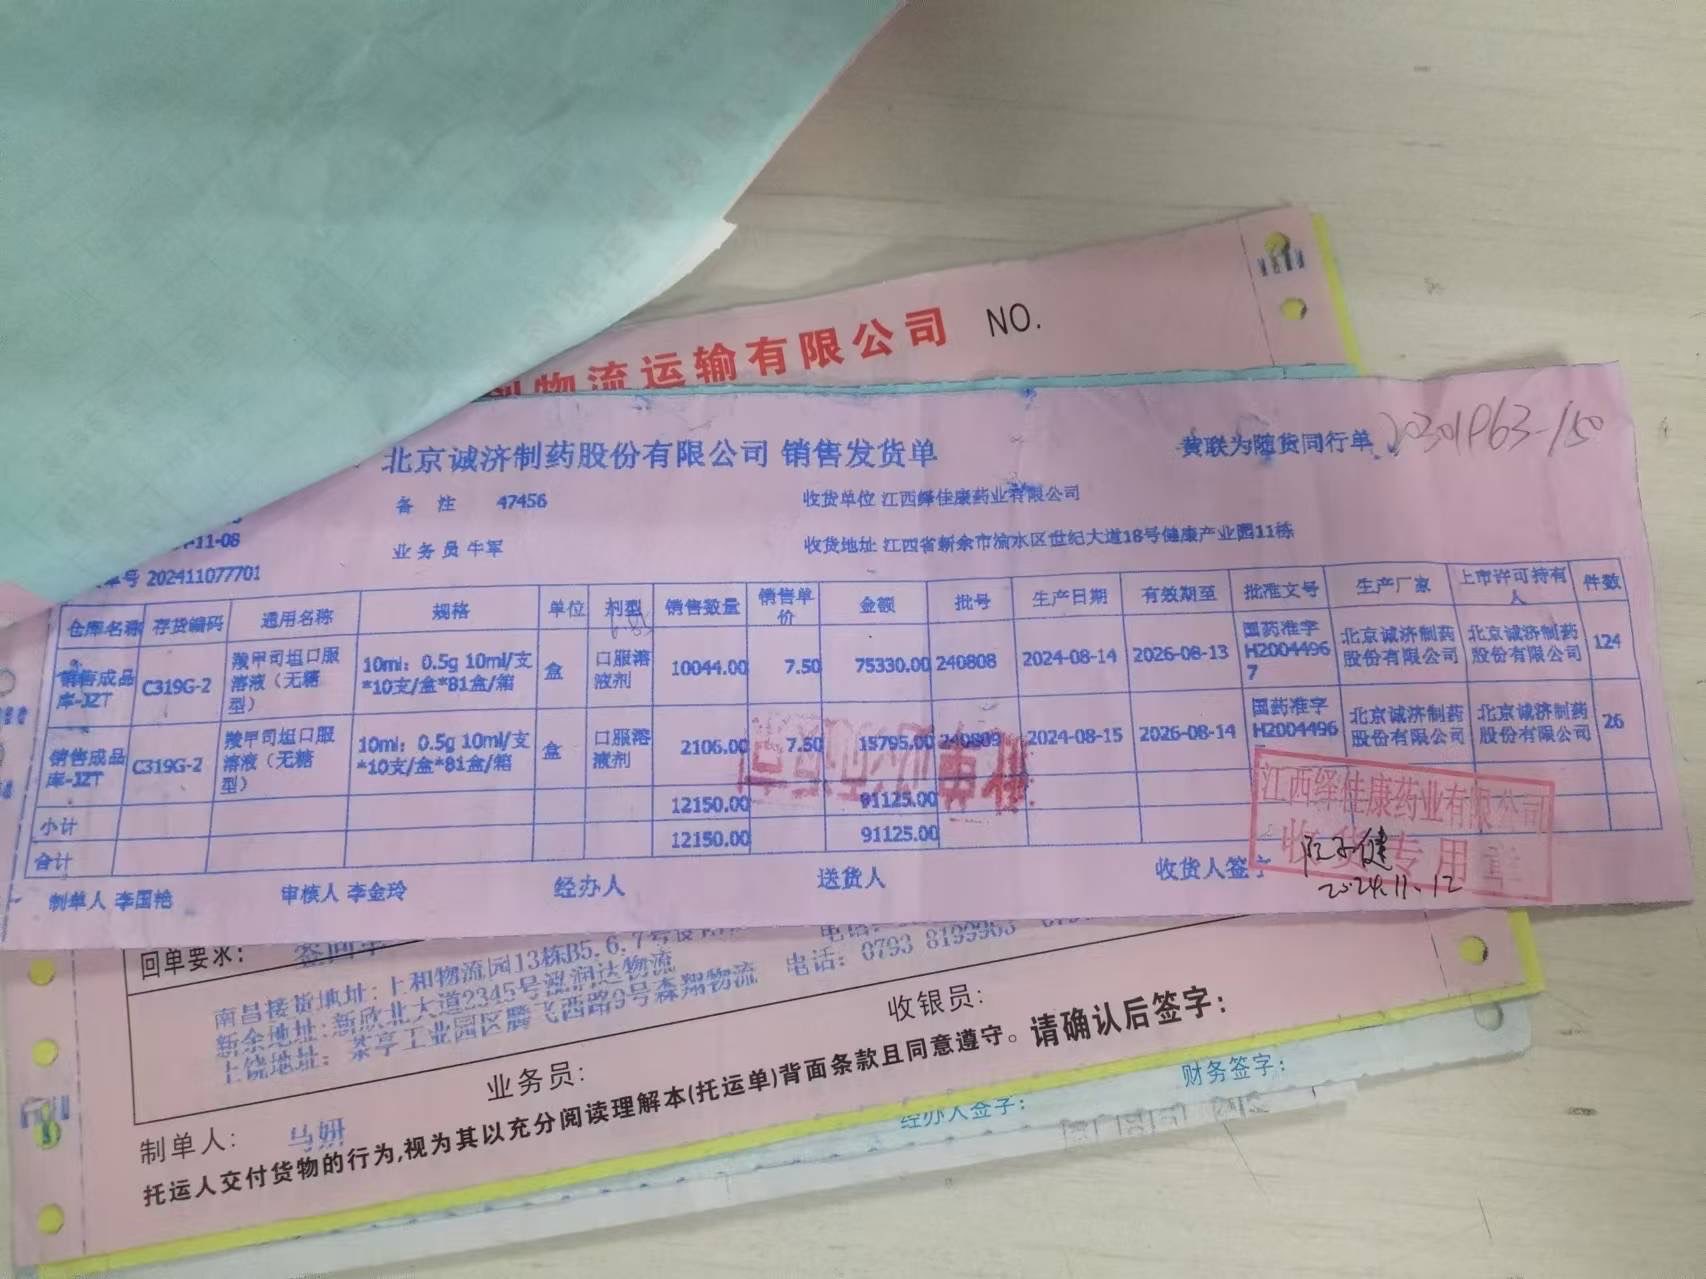 物流运输有限公司 NO.
北京诚济制药股份有限公司 销售发货单
黄联为随货同行单
备 注 47456
收货单位 江西绎佳康药业有限公司
-11-08
业务员 牛军
收货地址 江西省新余市渝水区世纪大道18号健康产业园11栋
单号 202411077701
仓库名称 存货编码 通用名称 规格 单位 剂型 销售数量 销售单价 金额 批号 生产日期 有效期至 批准文号 生产厂家 上市许可持有人 件数
销售成品库-JZT C319G-2 羧甲司坦口服溶液（无糖型） 10ml：0.5g 10ml/支*10支/盒*81盒/箱 盒 口服溶液剂 10044.00 7.50 75330.00 240808 2024-08-14 2026-08-13 国药准字H20044967 北京诚济制药股份有限公司 北京诚济制药股份有限公司 124
销售成品库-JZT C319G-2 羧甲司坦口服溶液（无糖型） 10ml：0.5g 10ml/支*10支/盒*81盒/箱 盒 口服溶液剂 2106.00 7.50 15795.00 240809 2024-08-15 2026-08-14 国药准字H2004496 北京诚济制药股份有限公司 北京诚济制药股份有限公司 26
小计 12150.00 91125.00
合计 12150.00 91125.00
江西绎佳康药业有限公司
收货专用章
制单人 李国艳 审核人 李金玲 经办人 送货人 收货人签字
2024.11.12
回单要求： 签回单
南昌接货地址：上和物流园13栋B5.6.7号
新余地址：新欣北大道2345号盈润达物流
上饶地址： 茶亭工业园区腾飞西路9号森翔物流 电话：0793 8199963
收银员：
业务员：
制单人：
托运人交付货物的行为,视为其以充分阅读理解本(托运单)背面条款且同意遵守。请确认后签字：
经办人签字： 财务签字：